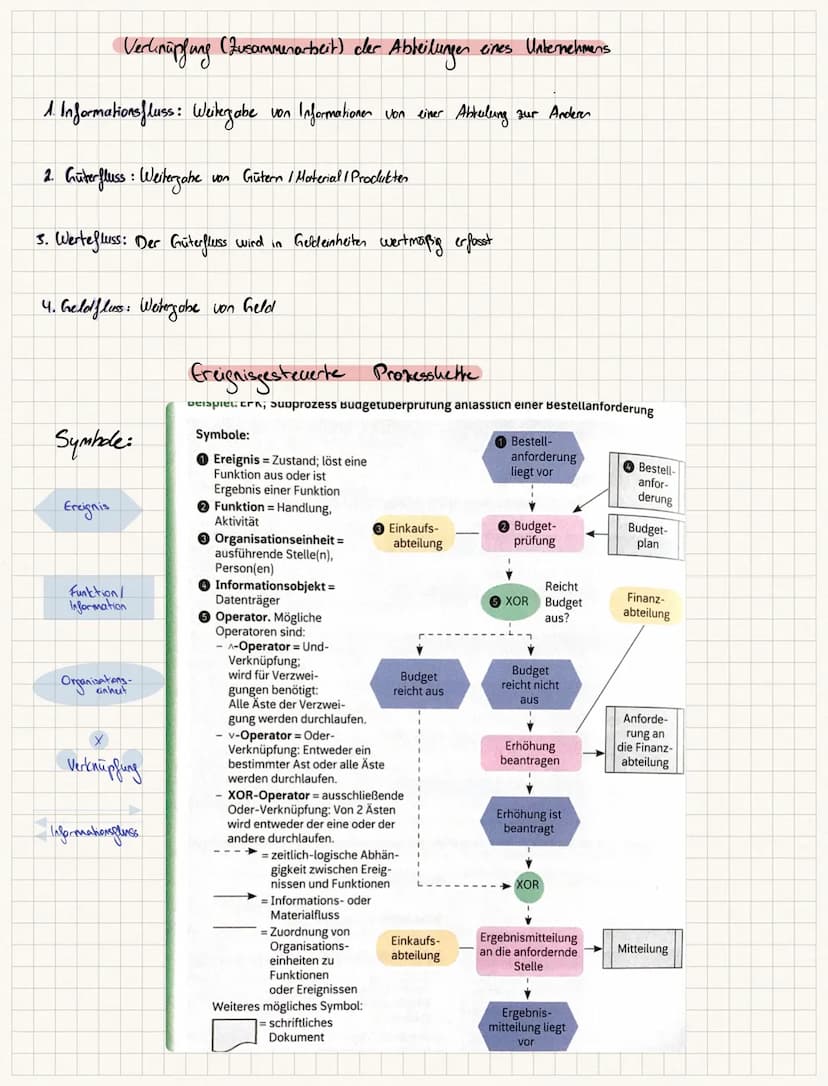 Verknüpfung (Zusammenarbeit) der Abteilungen eines Unternehmens
1. Informationsfluss: Weitergabe von Informationen von einer Abteilung zur Anderen
2. Güterfluss: Weitergabe von Gütern / Material / Produkten
3. Wertefluss: Der Güterfluss wird in Geldeinheiten wertmäßig erfasst
4. Geldfluss: Weitergabe von Geld
Ereignisgesteuerte Prozesskette
Beispiel: EPK, Subprozess Budgetüberprüfung anlässlich einer Bestellanforderung
Symbole:
Ereignis
Funktion/
Information
Organisations-
einheit
X
Verknüpfung
Informationsfluss
Symbole:
1 Ereignis = Zustand; löst eine
Funktion aus oder ist
Ergebnis einer Funktion
2 Funktion = Handlung,
Aktivität
3 Organisationseinheit =
ausführende Stelle(n),
Person(en)
4 Informationsobjekt =
Datenträger
5 Operator. Mögliche
Operatoren sind:
– ∧-Operator = Und-
Verknüpfung;
wird für Verzwei-
gungen benötigt:
Alle Äste der Verzwei-
gung werden durchlaufen.
– ∨-Operator = Oder-
Verknüpfung: Entweder ein
bestimmter Ast oder alle Äste
werden durchlaufen.
– XOR-Operator = ausschließende
Oder-Verknüpfung: Von 2 Ästen
wird entweder der eine oder der
andere durchlaufen.
= zeitlich-logische Abhän-
gigkeit zwischen Ereig-
nissen und Funktionen
= Informations- oder
Materialfluss
= Zuordnung von
Organisations-
einheiten zu
Funktionen
oder Ereignissen
Weiteres mögliches Symbol:
= schriftliches
Dokument
1 Bestell-
anforderung
liegt vor
4 Bestell-
anfor-
derung
3 Einkaufs-
abteilung
2 Budget-
prüfung
Budget-
plan
5 XOR
Reicht
Budget
aus?
Finanz-
abteilung
Budget
reicht aus
Budget
reicht nicht
aus
Erhöhung
beantragen
Anforde-
rung an
die Finanz-
abteilung
Erhöhung ist
beantragt
XOR
Einkaufs-
abteilung
Ergebnismitteilung
an die anfordernde
Stelle
Mitteilung
Ergebnis-
mitteilung liegt
vor